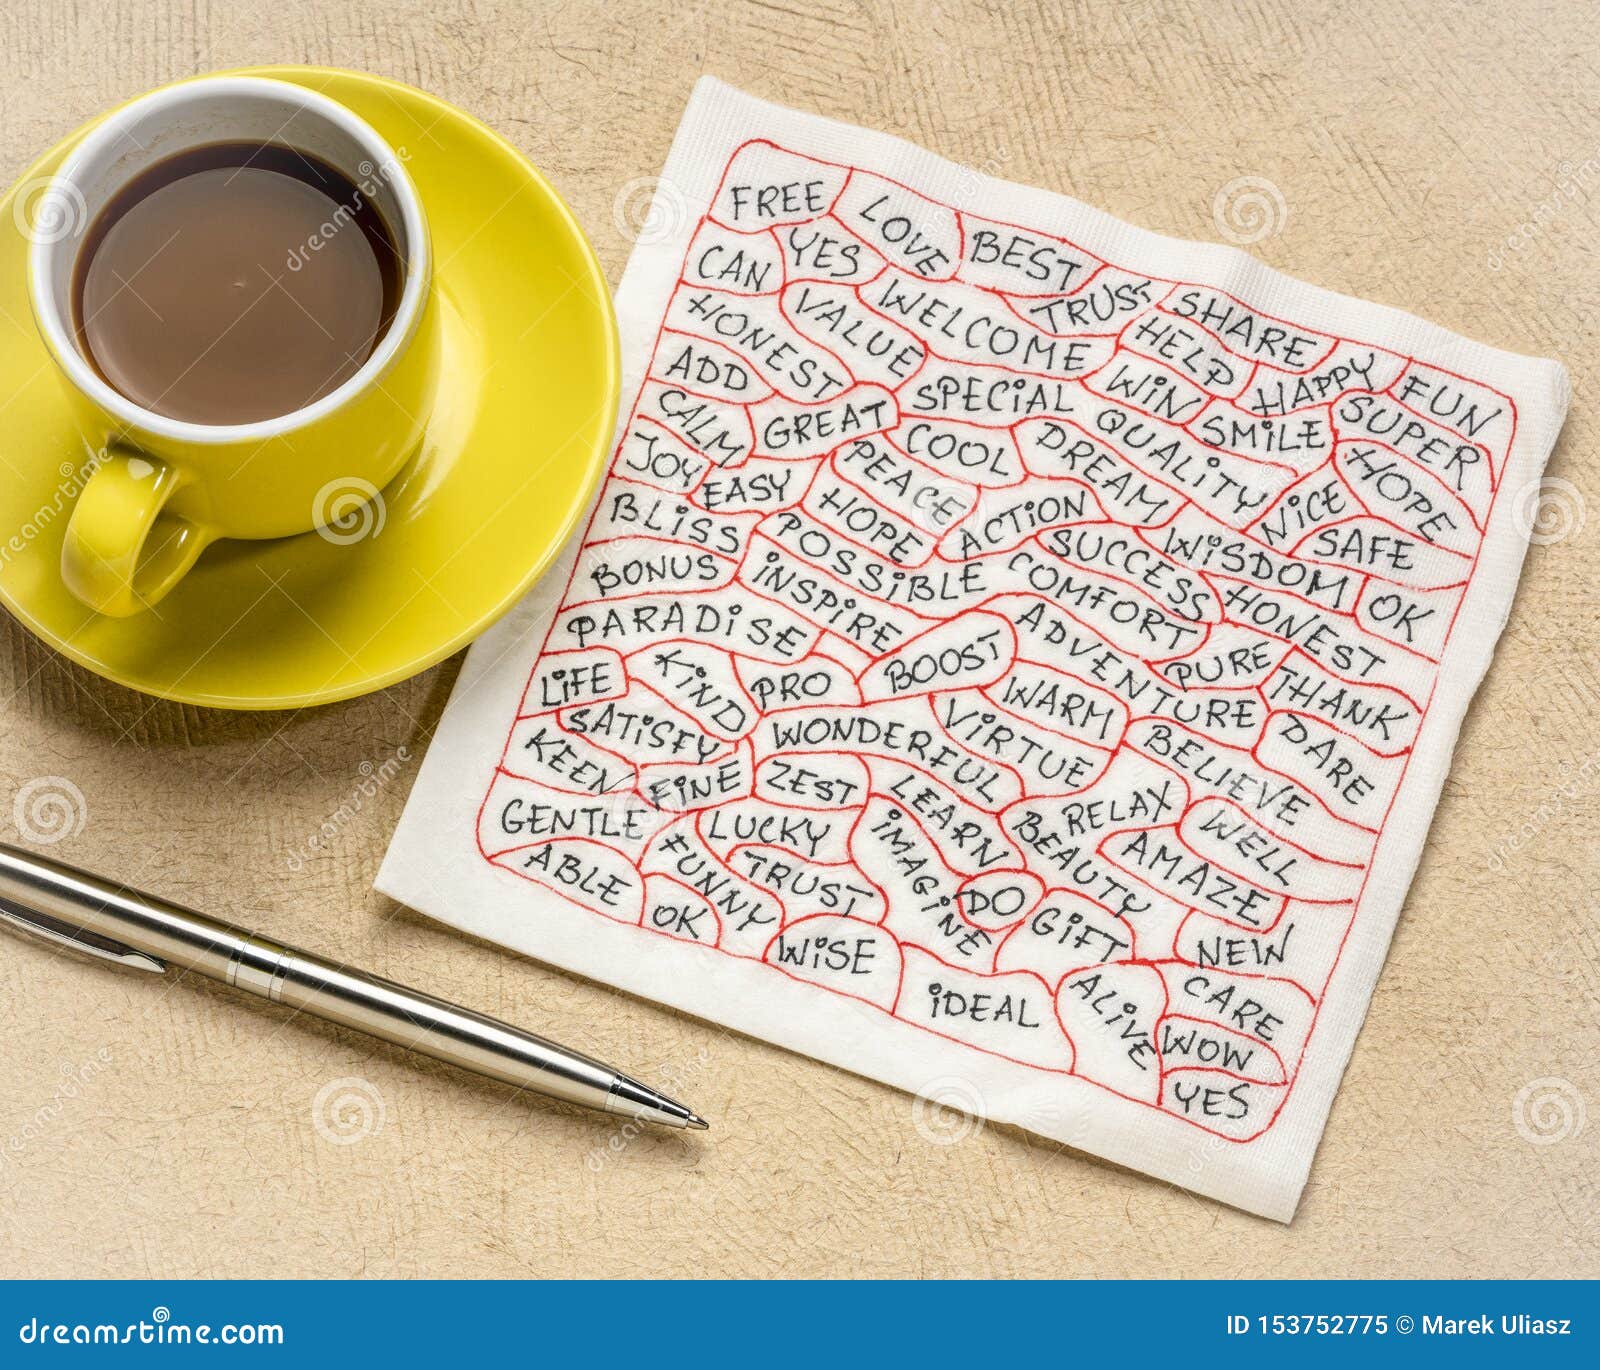 FREE
LOVE
BEST
TRUST
SHARE
CAN
YES
WELCOME
HELP
HAPPY
FUN
HONEST
VALUE
SPECIAL
WIN
SMILE
SUPER
ADD
GREAT
COOL
DREAM
QUALITY
NICE
HOPE
CALM
JOY
EASY
PEACE
ACTION
WISDOM
SAFE
BLISS
HOPE
POSSIBLE
SUCCESS
HONEST
OK
BONUS
INSPIRE
COMFORT
PURE
THANK
PARADISE
BOOST
ADVENTURE
DARE
LIFE
KIND
PRO
WARM
BELIEVE
SATISFY
WONDERFUL
VIRTUE
KEEN
FINE
ZEST
LEARN
RELAX
WELL
GENTLE
LUCKY
IMAGINE
BEAUTY
AMAZE
ABLE
FUNNY
TRUST
DO
GIFT
NEW
OK
WISE
IDEAL
ALIVE
CARE
WOW
YES
dreamstime.com
ID 153752775 © Marek Uliasz